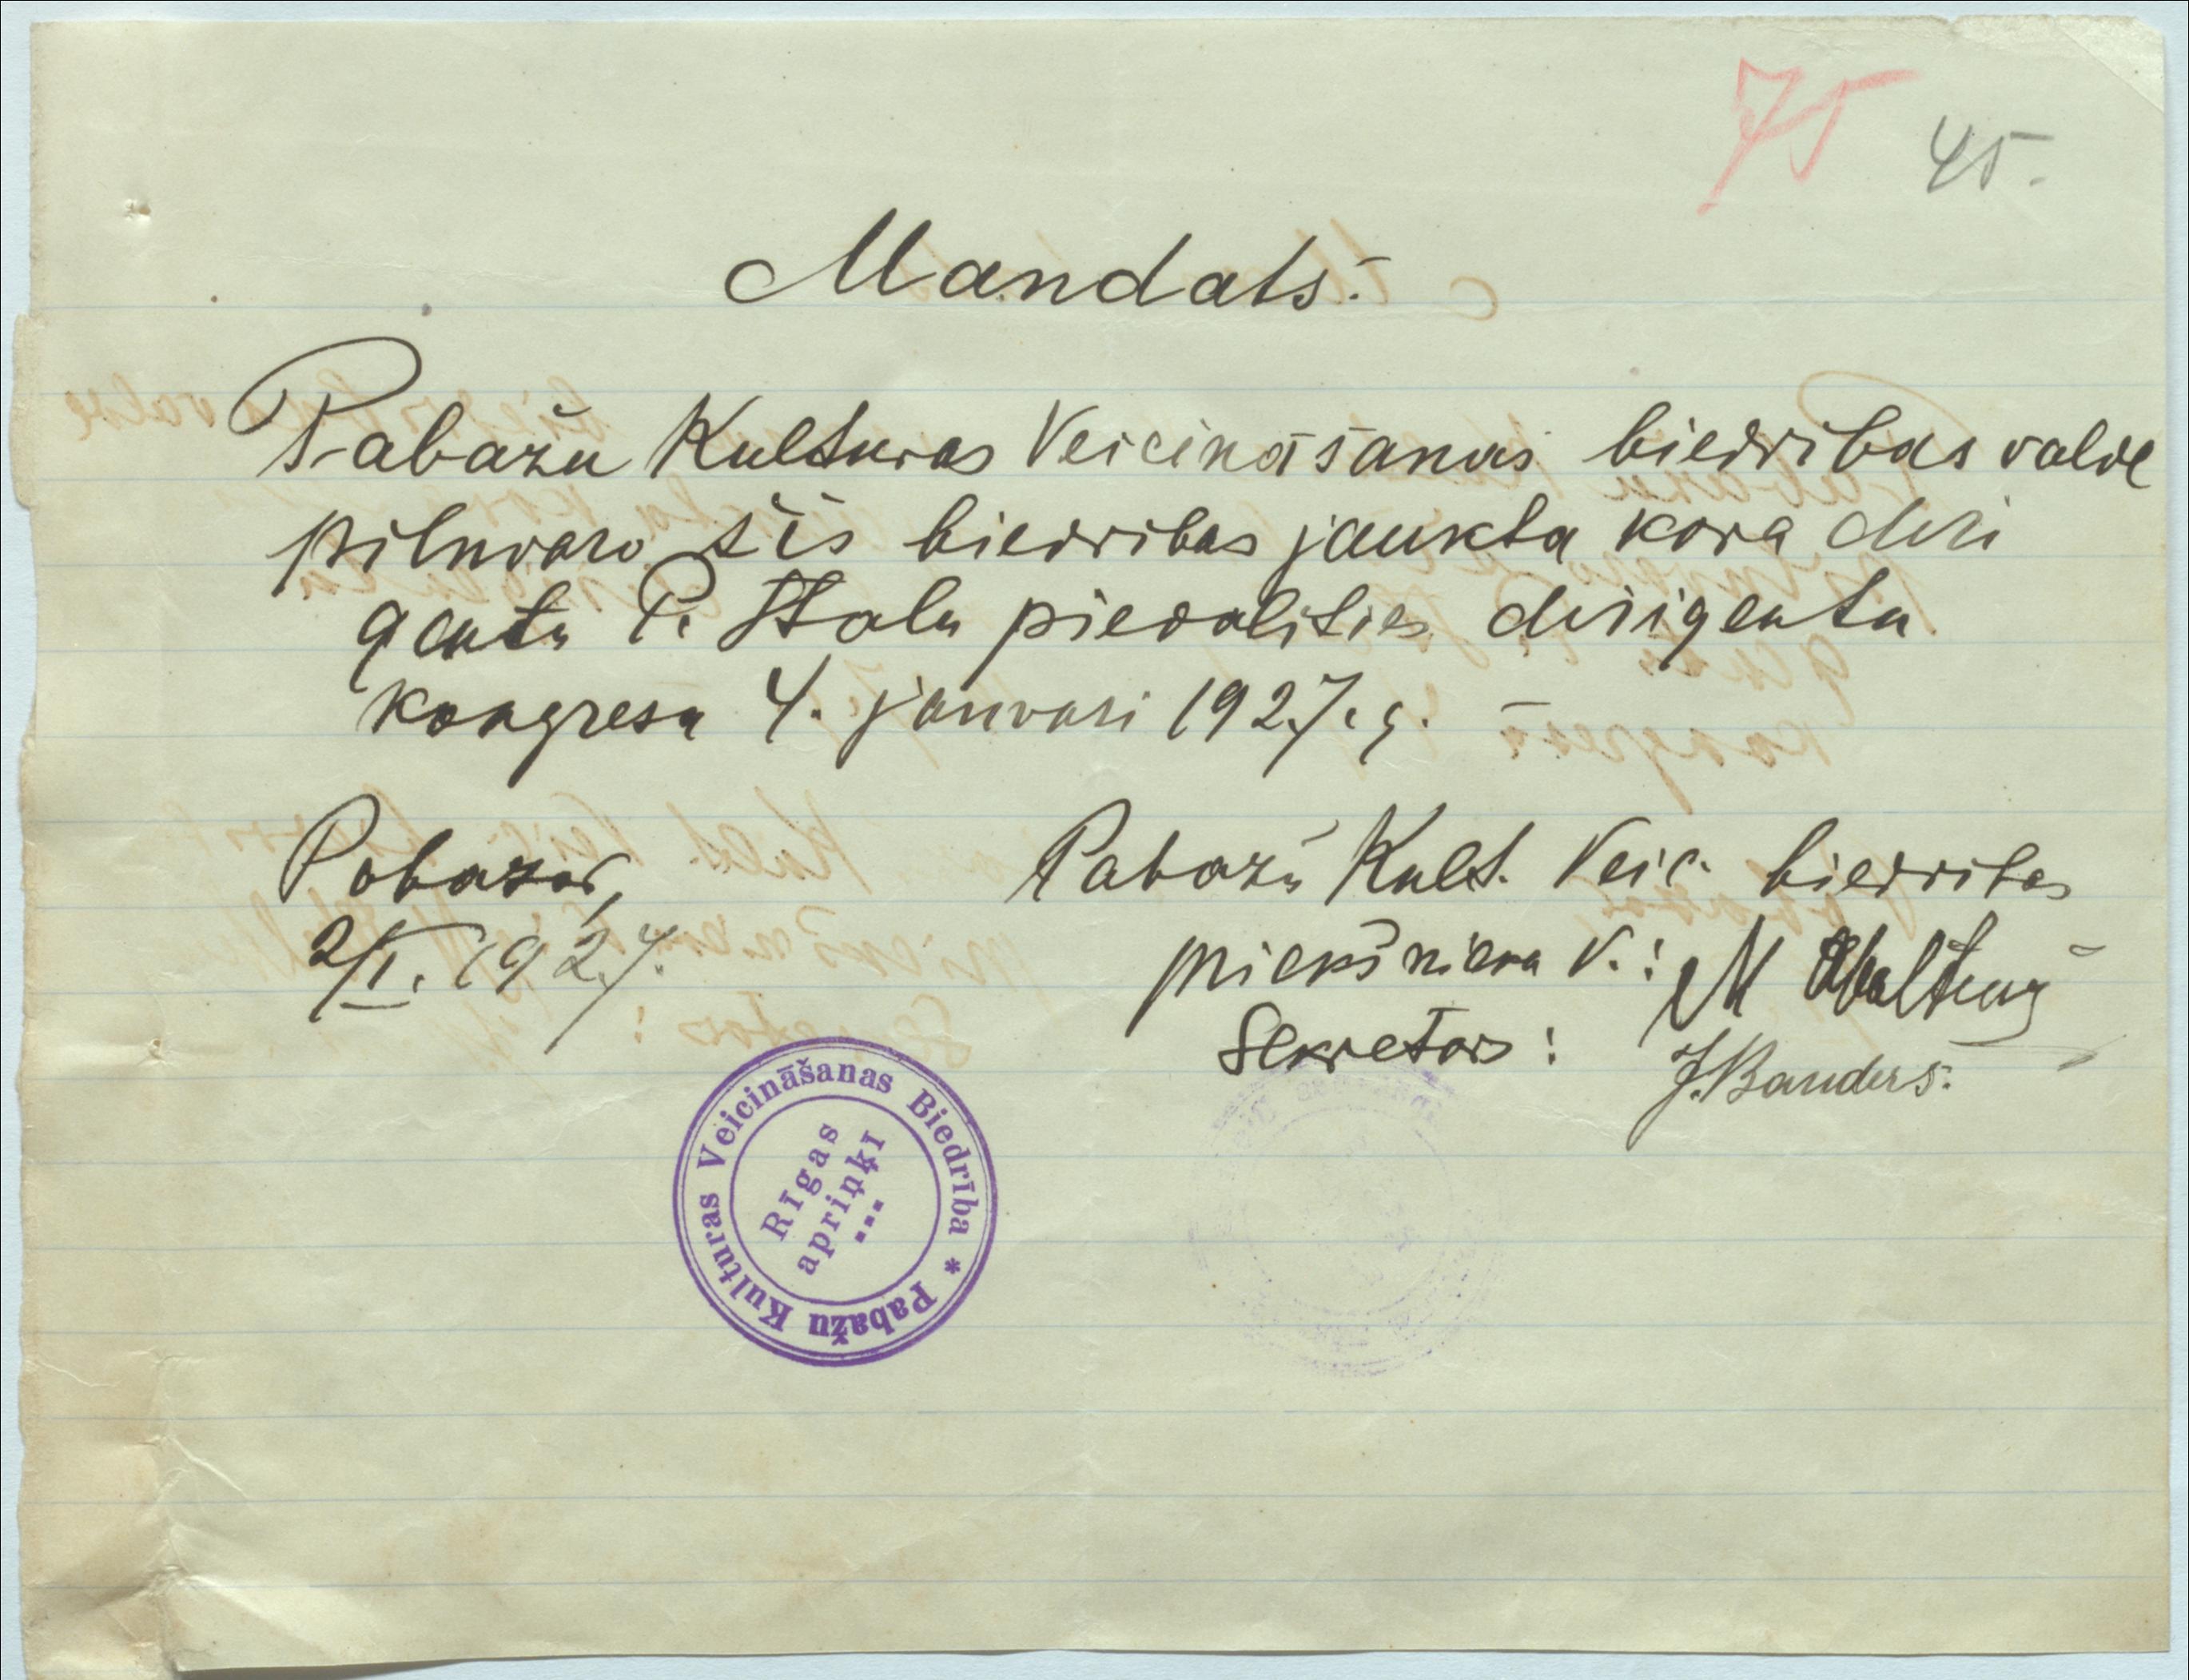 75 45.
Mandats.
Pabažu Kulturas Veicināšanas biedribas valde
pilnvaro šis biedribas jaukta kora diri
gentu P. Stalu piedalities dirigentu
kongresa 4. janvari 1927. g. –
Pabažos, Pabažu Kult. Veic. biedribas
2/I. 1927. priekšnieka v.: M
Sekretars: J. Banders.
Pabažu Kulturas Veicināšanas Biedrība *
Rīgas
apriņķī